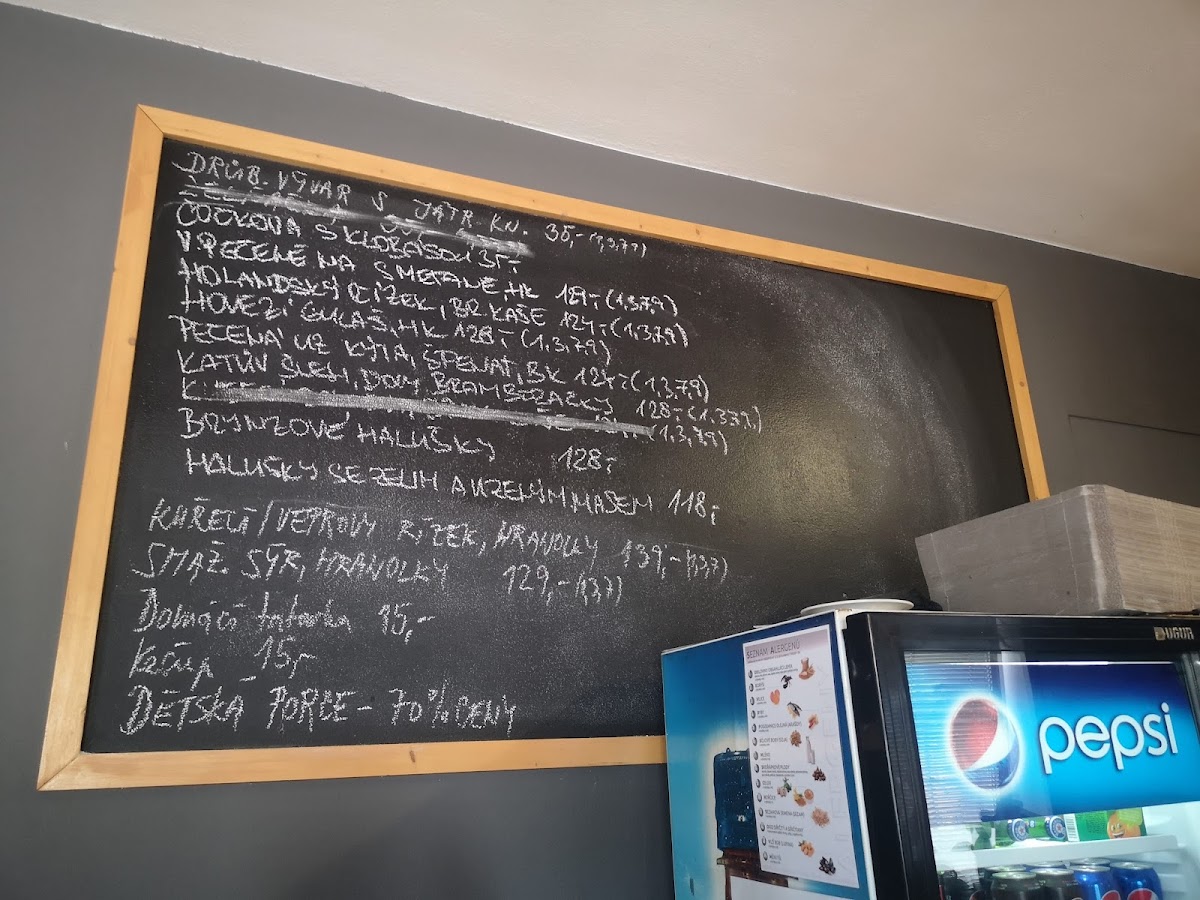 DRŮB. VÝVAR S JÁTR. KN. 35,- (1,3,7,9)
ČOČKOVÁ S KLOBÁSOU 35,-
V.PEČENĚ NA SMETANĚ, HK 129,- (1,3,7,9)
HOLANDSKÝ ŘÍZEK, BR. KAŠE 124,- (1,3,7,9)
HOVĚZÍ GULÁŠ, HK 128,- (1,3,7,9)
PEČENÁ UZ KÝTA, ŠPENÁT, BK 124,- (1,3,7,9)
KATŮV ŠLEH, DOM. BRAMBORÁČKY 128,- (1,3,7,9,)
(1,3,7,9)
BRYNZOVÉ HALUŠKY 128,-
HALUŠKY SE ZELÍM A UZENÝM MASEM 118,-
KUŘECÍ/VEPŘOVÝ ŘÍZEK, HRANOLKY 139,- (1,3,7)
SMAŽ SÝR, HRANOLKY 129,- (1,3,7)
Domácí tatarka 15,-
Kečup 15,-
DĚTSKÁ PORCE - 70% CENY
SEZNAM ALERGENŮ
UGUR
pepsi